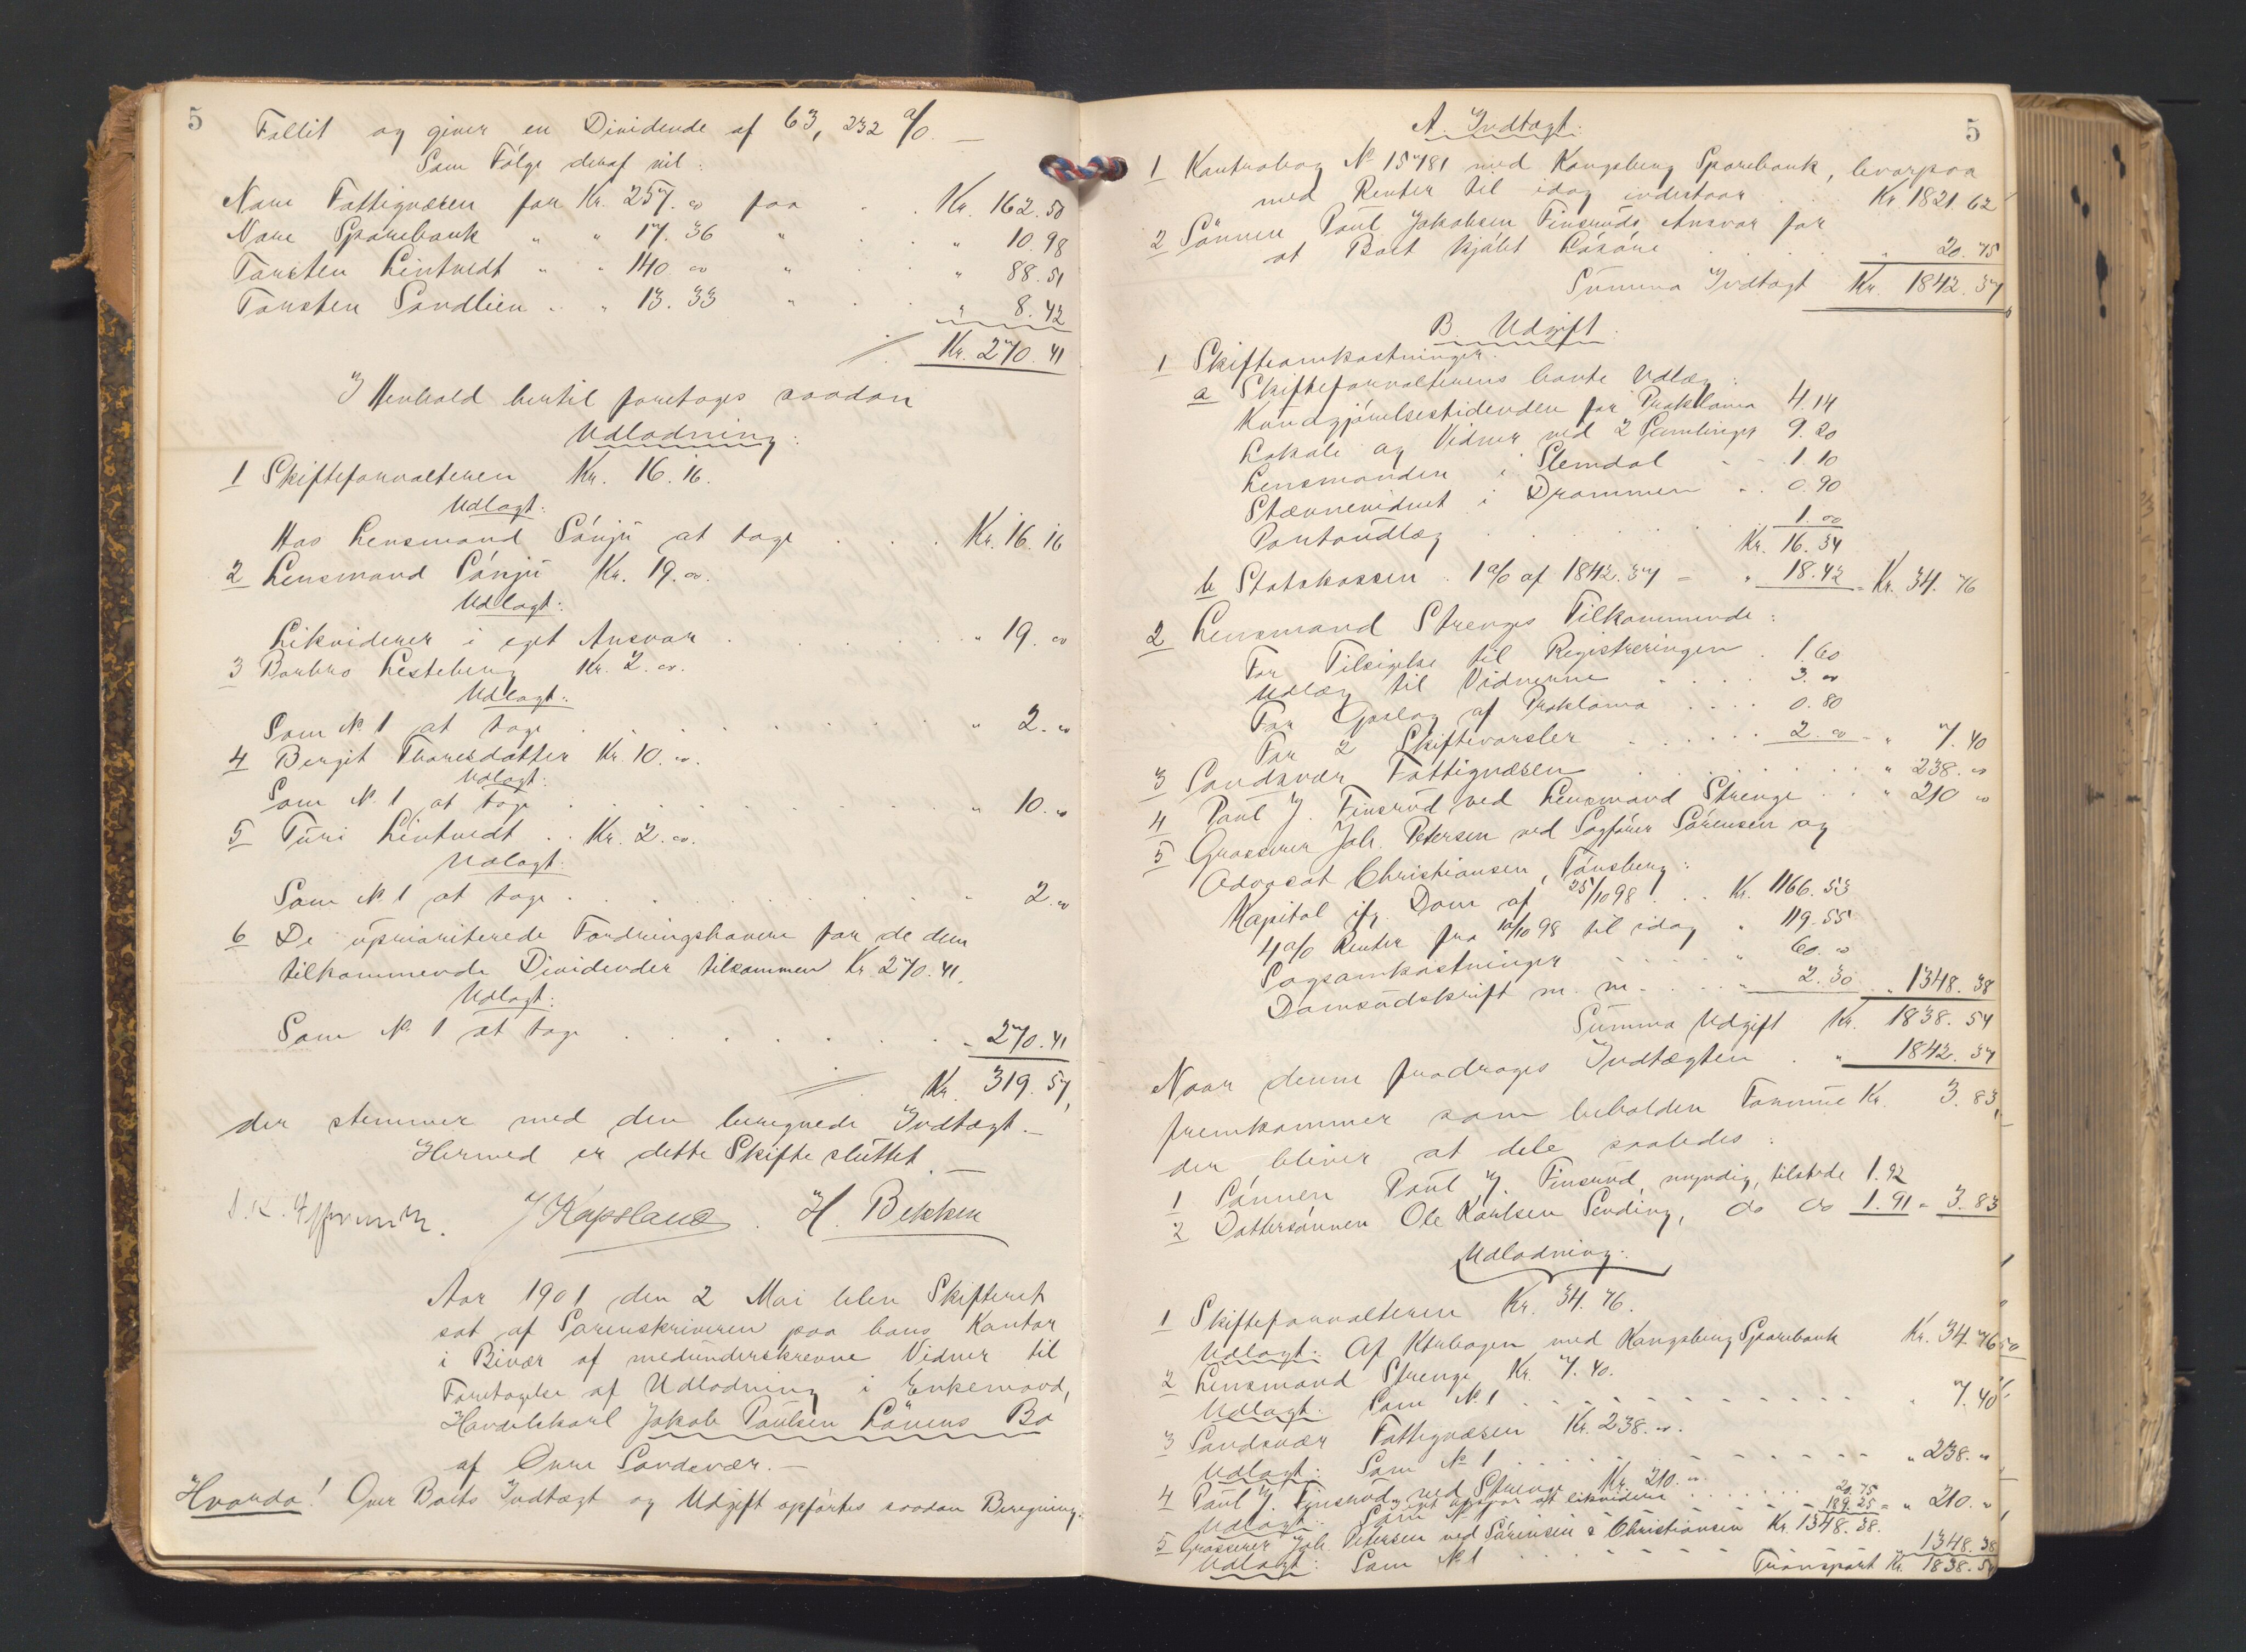 5
Fallit og giver en Dividende af 63,232 % —
Som Følge deraf vil:
Nore Fattigvæsen for Kr. 257.00 faa . . Kr. 162.50
Nore Sparebank " " 17.36 " . . " 10.98
Torsten Lintvedt " " 140.00 " . . " 88.51
Torsten Sandlien " " 13.33 " . . " 8.42
Kr. 270.41
I Henhold hertil foretages saadan
Udlodning:
1 Skifteforvalteren Kr. 16.16.
Udlagt:
Hos Lensmand Sønju at tage . . . Kr. 16.16
2 Lensmand Sønju Kr. 19.00.
Udlagt:
Likviderer i eget Ansvar . . . . " 19.00
3 Barbro Lesteberg Kr. 2.00.
Udlagt:
Som No 1 at tage . . . . " 2.00
4 Bergit Thoresdatter Kr. 10.00.
Udlagt:
Som No 1 at tage . . . . " 10.00
5 Turi Lintvedt . . Kr. 2.00.
Udlagt:
Som No 1 at tage . . . . " 2.00
6 De upriariterede Fordringshavere for de dem
tilkommende Dividender tilsammen Kr. 270.41.
Udlagt:
Som No 1 at tage . . . . " 270.41
Kr. 319.57,
der stemmer med den beregnede Indtægt. —
Hermed er dette Skifte sluttet. —
J Kapsland. H. Bekken
Aar 1901 den 2 Mai blev Skifteret
sat af Sorenskriveren paa hans Kontor
i Bivær af medunderskrevne Vidner til
Foretagelse af Udlodning i Enkemand,
Handelskarl Jakob Paulsen Løvens Bo
af Øvre Sandsvær. —
Hvorda! Over Boets Indtægt og Udgift opførtes saadan Beregning:
5
A. Indtægt:
1 Kontrabog No 15781 med Kongsberg Sparebank, hvorpaa
med Renter til idag indestaar . . Kr. 1821.62
2 Sønnen Paul Jakobsen Finsruds Ansvar for
at Boet kjøbt Løsøre . . . . " 20.75
Summa Indtægt Kr. 1842.37
B. Udgift.
1 Skifteomkostninger.
a Skifteforvalterens havte Udlæg:
Kundgjørelsestidenden for Proklama 4.14
Lokale og Vidner ved 2 Samlinger 9.20
Lensmanden i Slemdal - - 1.10
Stævnevidnet i Drammen . . 0.90
Portoudlæg . . . . 1.00
Kr. 16.34
b Statskassen . 1 % af 1842.37 = " 18.42 = Kr. 34.76
2 Lensmand Strenges Tilkommende:
For Tilsigelse til Registreringen . 1.60
Udlæg til Vidnerne . . . . 3.00
For Opslag af Proklama . . . . 0.80
For 2 Skiftevarsler . . . . 2.00 = " 7.40
3 Sandsvær Fattigvæsen . . . . " 238.00
4 Paul J. Finsrud ved Lensmand Strenge . . " 210.00
5 Grosserer Joh. Petersen ved Sagfører Sørensen og
Advocat Christiansen, Tønsberg:
Kapital ifg. Dom af 25/10 98 . . Kr. 1166.53
4 % Renter fra 10/10 98 til idag " 119.55
Sagsomkostninger - - - - " 60.00
Domsudskrift m. m. - . . . " 2.30 . " 1348.38
Summa Udgift Kr. 1838.54
Naar denne fradrages Indtægten . " 1842.37
fremkommer som beholden Formue Kr. 3.83,
der bliver at dele saaledes:
1 Sønnen Paul J. Finsrud, myndig, tilstede 1.92
2 Dattersønnen Ole Karlsen Sending, do do 1.91 = 3.83
Udlodning:
1 Skifteforvalteren Kr. 34.76.
Udlagt: Af Ktrbogen med Kongsberg Sparebank Kr. 34.76
2 Lensmand Strenge Kr. 7.40.
Udlagt: Som No 1 . - - - - " 7.40
3 Sandsvær Fattigvæsen Kr. 238.00.
Udlagt: Som No 1 . . - - - " 238.00
4 Paul J. Finsrud, ved Strenge Kr. 210.00.
Udlagt: I eget Ansvar at likvidere . . . . 20.75
Som No 1 - - - - 189.25 = " 210.00
5 Grosserer Joh. Petersen ved Sørensen & Christiansen Kr. 1348.38.
Udlagt: Som No 1 . . - - - " 1348.38
Transport Kr. 1838.54